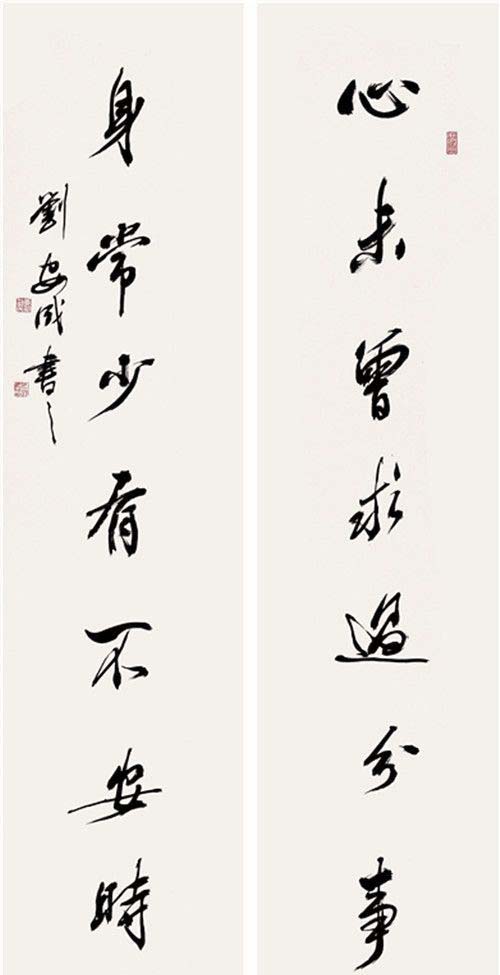 心未曾求過分事
身常少有不安時
劉安成書之